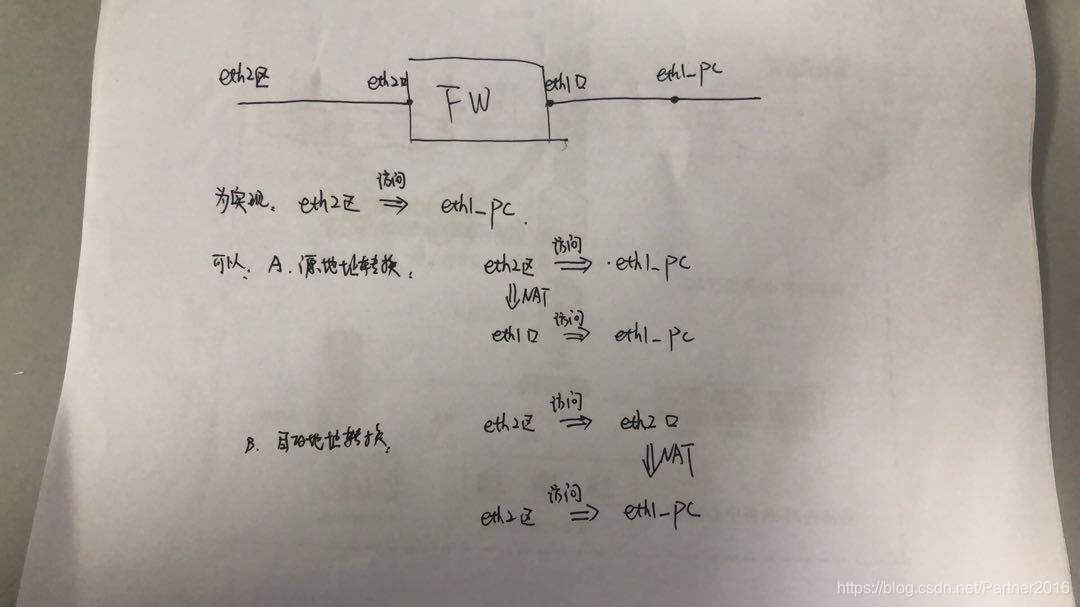 eth2区 eth2口 FW eth1口 eth1_PC
访问
为实现: eth2区 ⇒ eth1_PC.
访问
可以: A. 源地址转换: eth2区 ⇒ ·eth1_PC
⇓NAT
访问
eth1口 ⇒ eth1_PC
访问
eth2区 ⇒ eth2口
B. 目的地址转换: ⇓NAT
访问
eth2区 ⇒ eth1_PC
https://blog.csdn.net/Partner2016